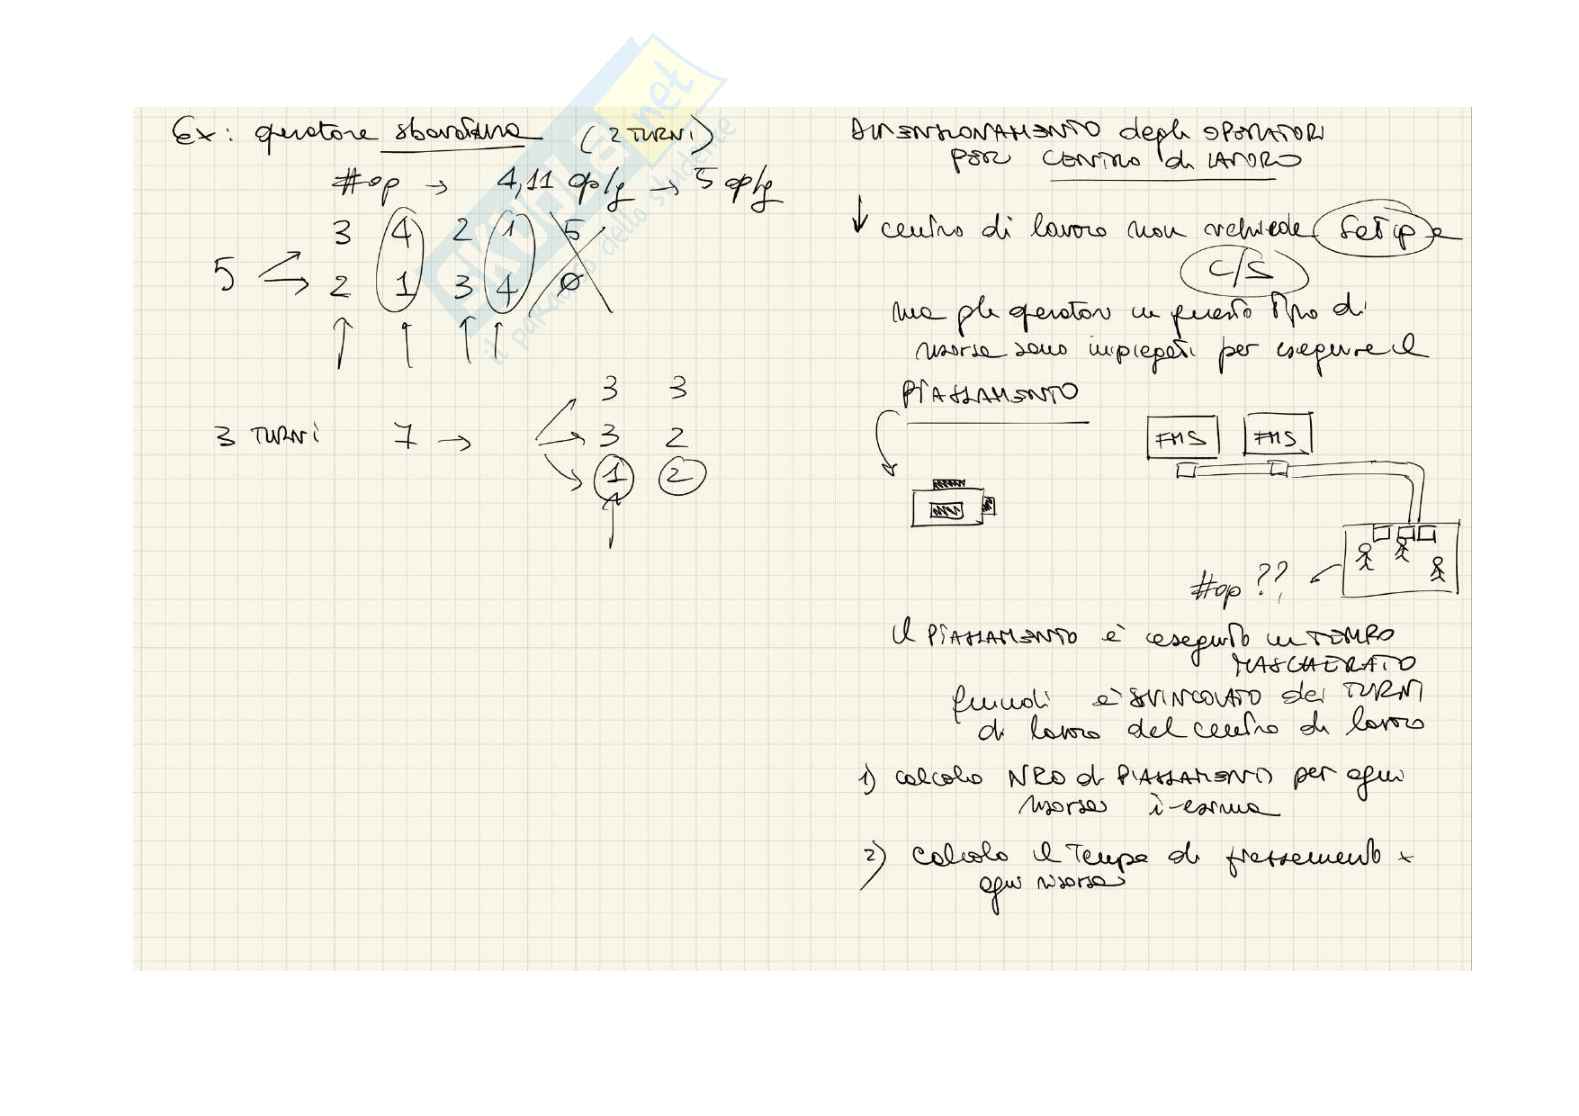 Ex: operatore sbavatura (2 TURNI)
#op → 4,11 op/g → 5 op/g
3 4 2 1 5
5
2 1 3 4 0
3 3
3 TURNI 7 → 3 2
1 2
DIMENSIONAMENTO degli OPERATORI
PER CENTRO di LAVORO
↓ centro di lavoro non richiede SETUP e
C/S
ma gli operatori in questo tipo di
risorsa sono impiegati per eseguire il
PIAZZAMENTO
FMS FMS
#op ??
il PIAZZAMENTO è eseguito in TEMPO
MASCHERATO
quindi è SVINCOLATO dai TURNI
di lavoro del centro di lavoro
1) calcolo NRO di PIAZZAMENTI per ogni
risorsa i-esima
2) calcolo il Tempo di piazzamento x
ogni risorsa
SKUOLA.net
il paradiso dello studente